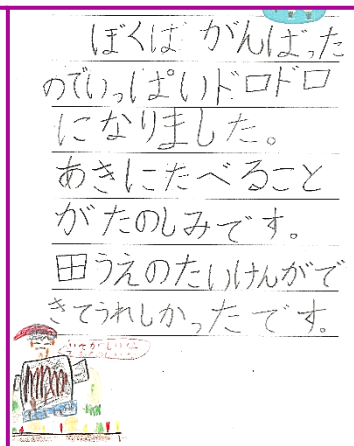 ぼくは がんばった
のでいっぱいドロドロ
になりました。
あきにたべること
がたのしみです。
田うえのたいけんがで
きてうれしかったです。